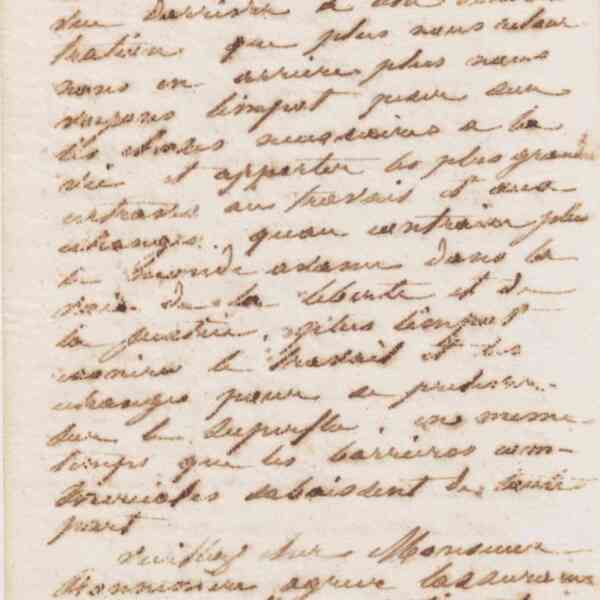 que plus nous retour
nons en arrière plus nous
voyons limpot peser sur
les choses necessaires a la
vie et apporter les plus grandes
entraves au travail et aux
echanges. quau contraire plus
le monde avance dans la
voie de la liberté et de
la justice, plus limpot
le travail et les
echanges pour se
sur le superflu, en meme
temps que les barrieres com-
merciales sabaissent de toute
part
veuillez cher Monsieur
agreer lassurance